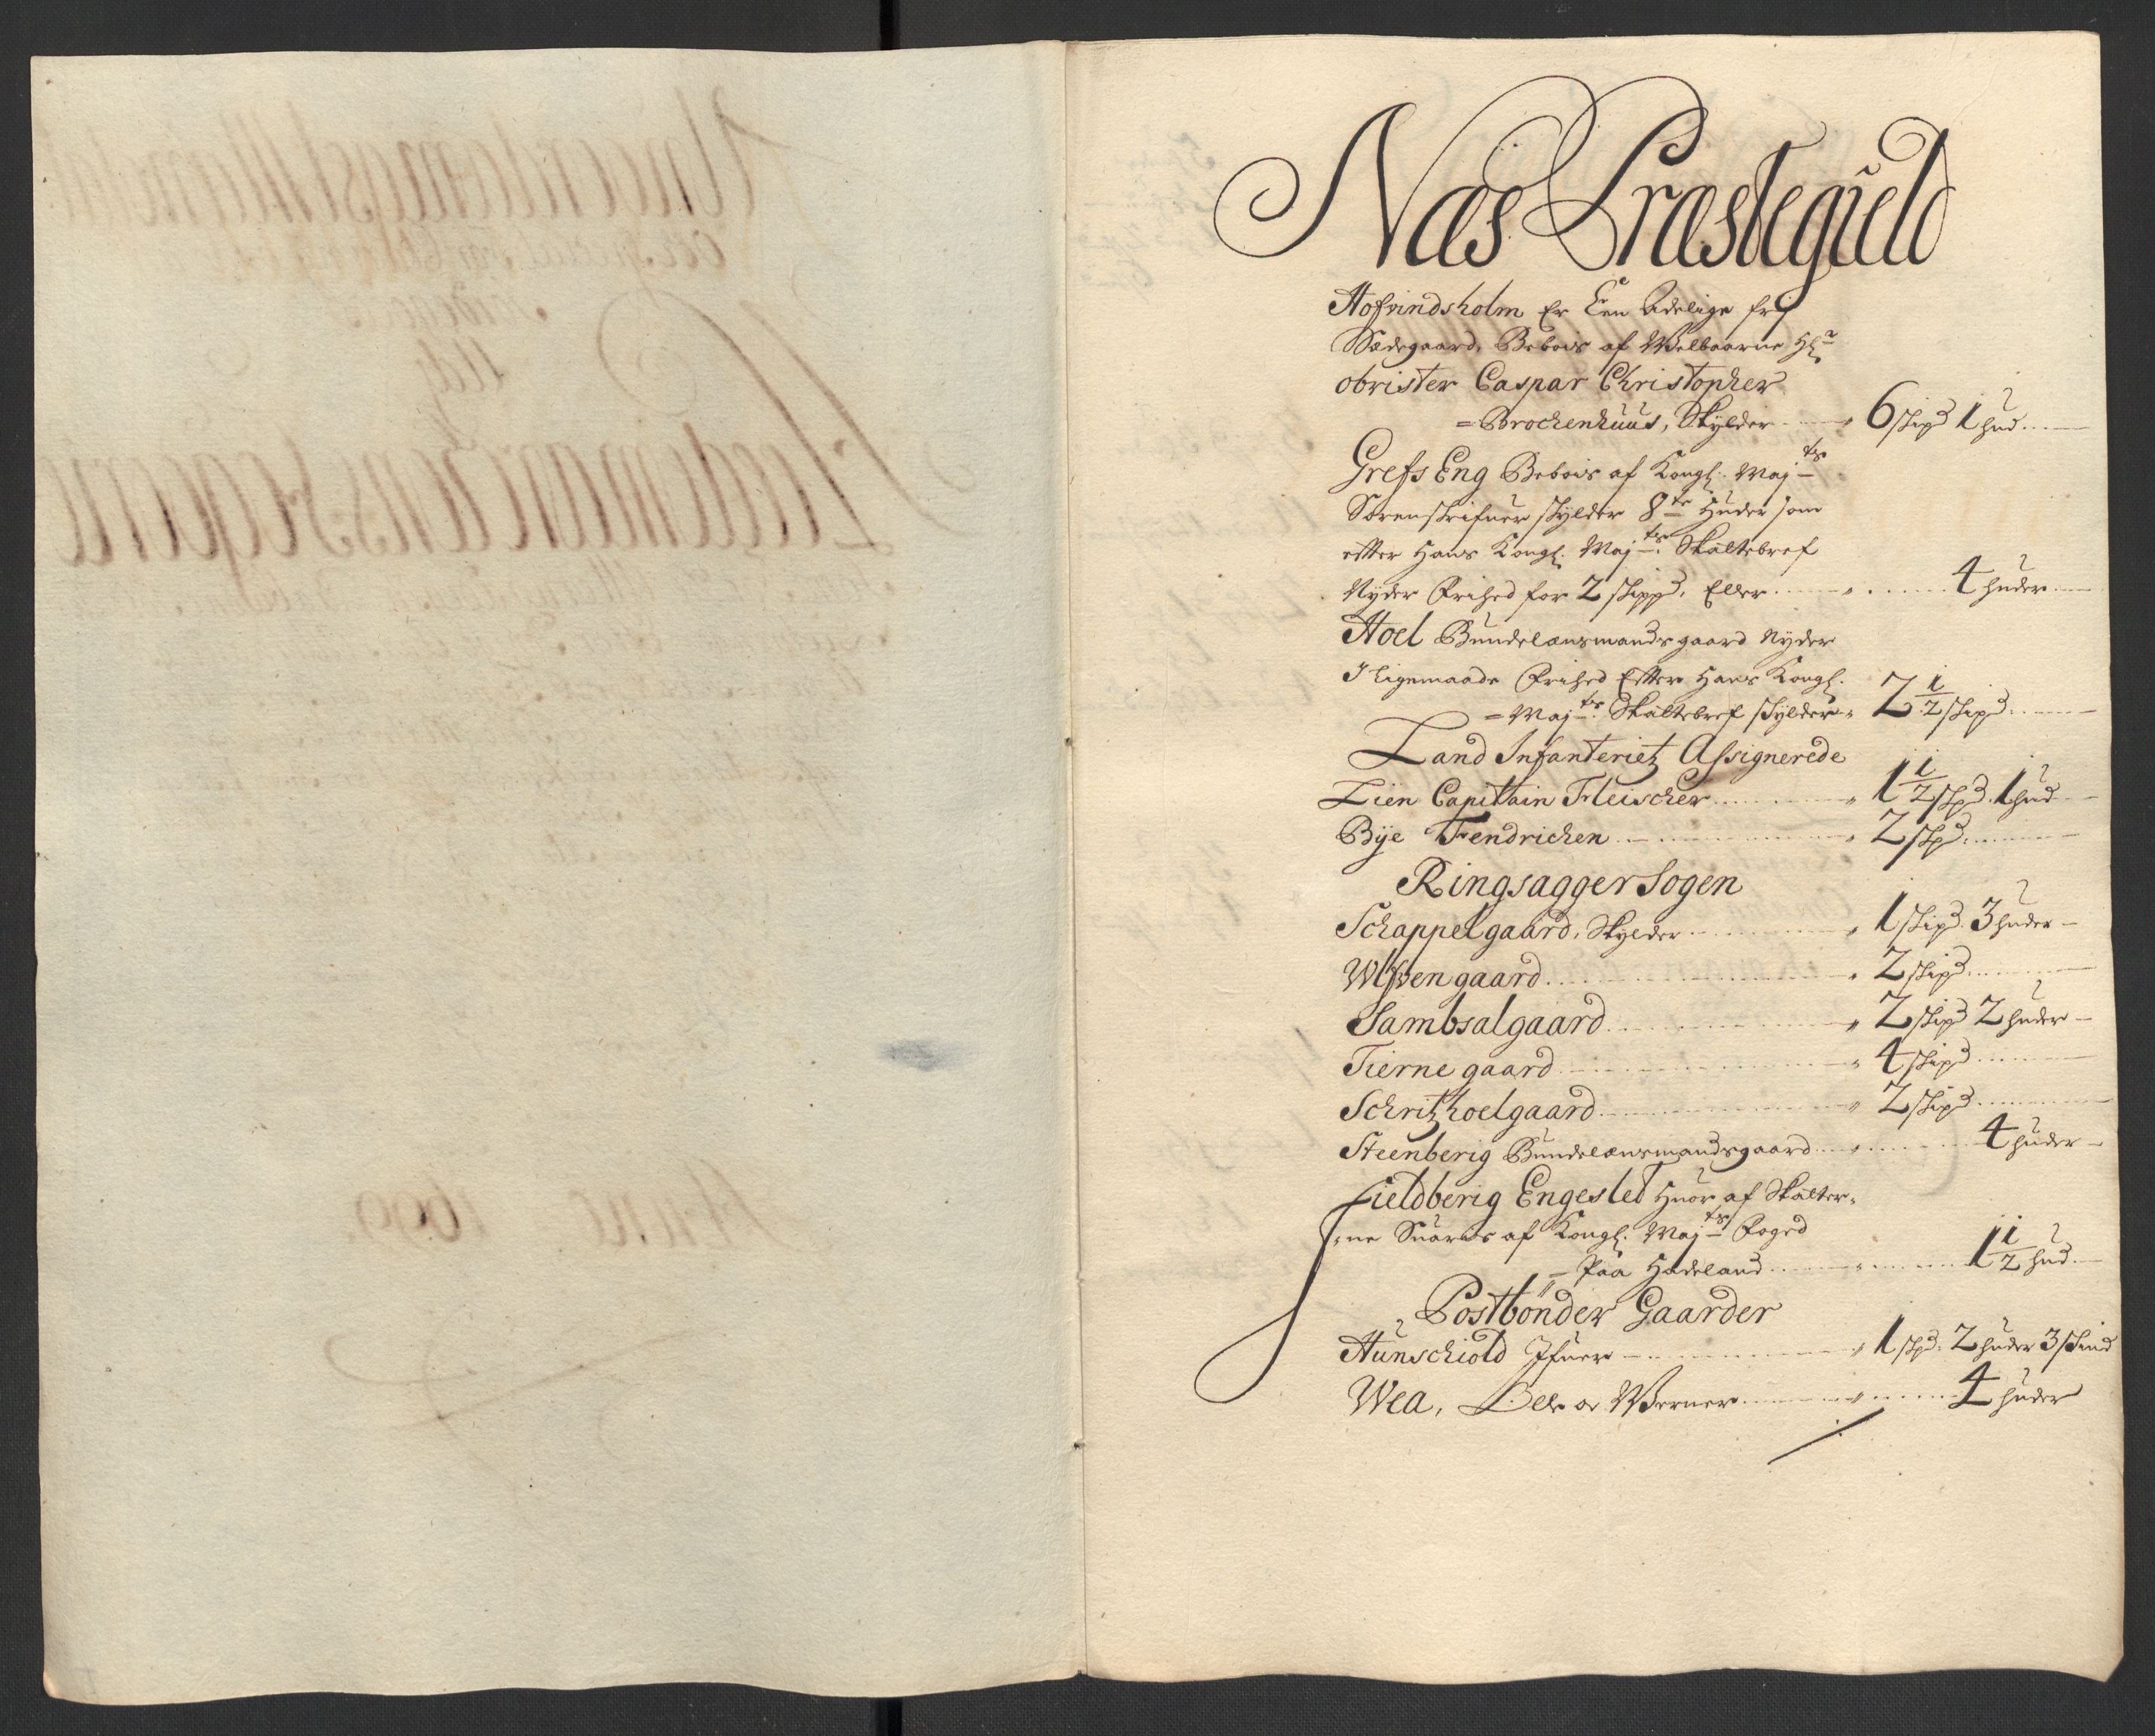 Næs Præstegield
Hofvindsholm Er Een Adelige frij
Sædegaard, Beboes af Welbaarne Hr
obrister Caspar Christopher
=Brochenhuus, Skylder 6 skip 1 hud
Grefs Eng Beboes af Kongl. Maj.ts
Sorenskrifuer skylder 8te Huder som
efter Hans Kongl. Maj.ts Skaltebref
Nyder Frihed for 2 skipp. Eller 4 huder
Hoel Bundelænsmands gaard Nyder
J ligemaade Frihed Efter Hans Kongl.
=Maj.ts Skaltebref skylder 2 1/2 skip
Land Infanteriet Assignerede
Lien Capitain Fleischer 1 1/2 skp. 1 hud
Bye Fendrichen 2 skp
Ringsagger Sogen
Schappelgaard, Skylder 1 skip 3 huder
gaard 2 skip
Sambsalgaard 2 skip 2 huder
Tierne gaard 4 skip
Schritzhoelgaard 2 skip
Steenberig Bundelænsmandsgaard 4 huder
Fieldberig Engeslet Huor af Skatter-
-ne Suares af Kongl. Maj.ts Foged
=Paa Hadeland 1 1/2 hud
Postbönder Gaarder
Hunschiold Ifuer 1 skp. 2 huder 3 skind
Wea, Werner 4 huder
Anno